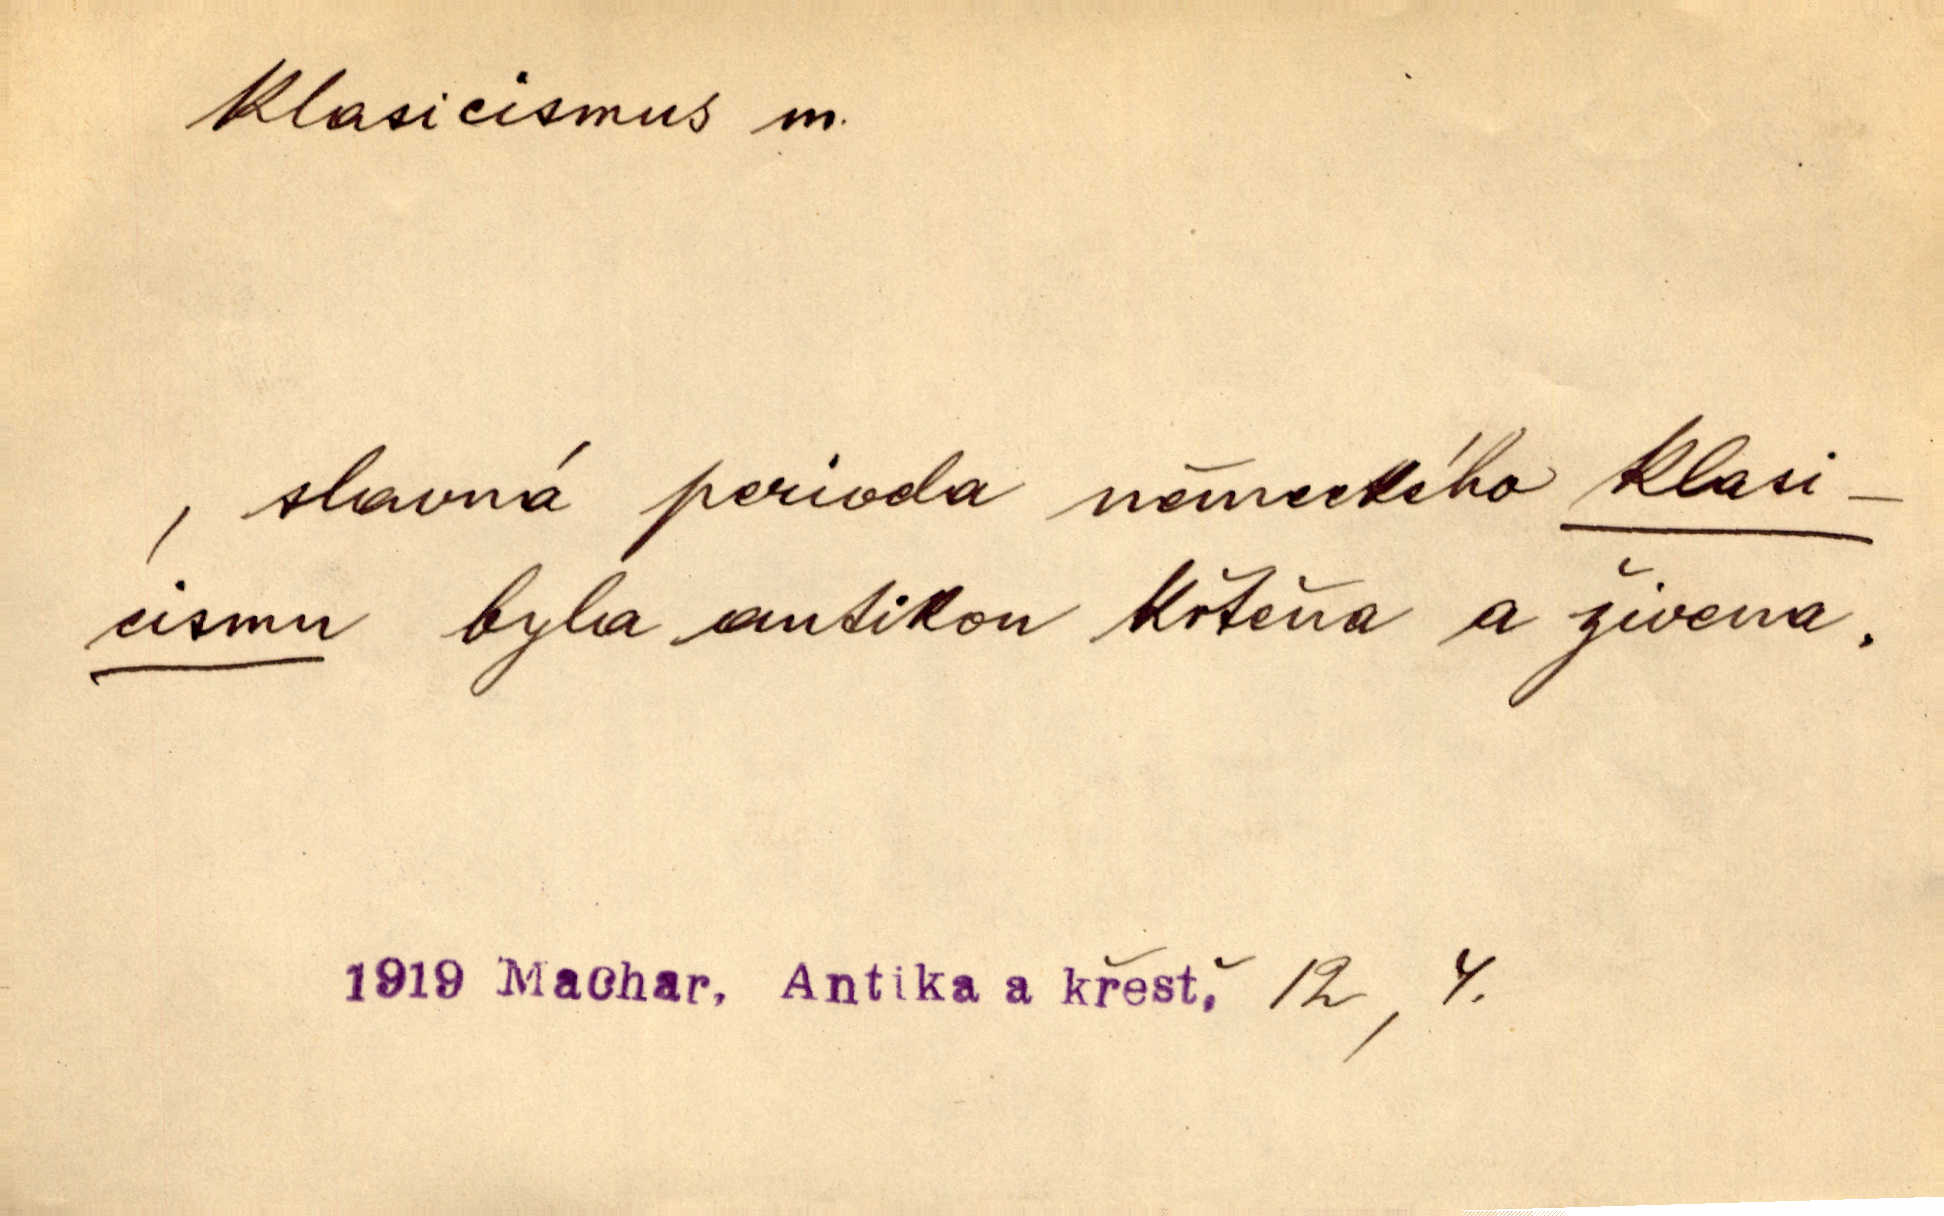 Klasicismus m.
, slavná perioda německého klasi-
cismu byla antikou křtěna a živena.
1919 Machar, Antika a křest. 12, 4.